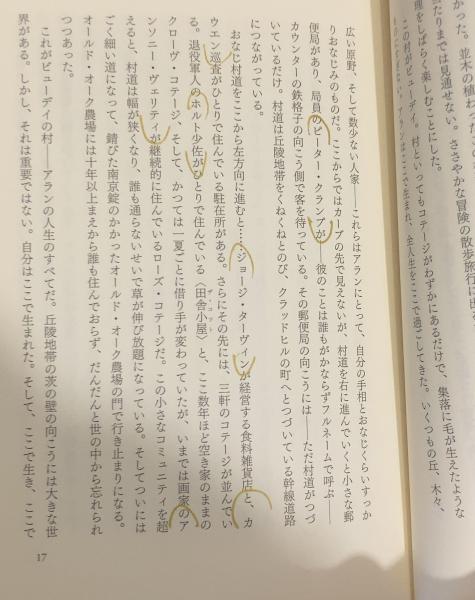 かった。並木の植
当たりまでは見通せない。ささやかな冒険の散歩旅行に出
理をしばらく楽しむことにした。
この村がビューデイ。村といってもコテージがわずかにあるだけで、集落に毛が生えたような
アランはここで生まれ、全人生をここで過ごしてきた。いくつもの丘、木々、
広い原野、そして数少ない人家――これらはアランにとって、自分の手相とおなじくらいすっか
りおなじみのものだ。ここからではカーブの先で見えないが、村道を右に進んでいくと小さな郵
便局があり、局員のピーター・クランプが――彼のことは誰もがかならずフルネームで呼ぶ――
カウンターの鉄格子の向こう側で客を待っている。その郵便局の向こうには――ただ村道がつづ
いているだけ。村道は丘陵地帯をくねくねとのび、クラッドヒルの町へとつづいている幹線道路
につながっている。
おなじ村道をここから左方向に進むと…ジョージ・ターヴィンが経営する食料雑貨店と、カ
ウエン巡査がひとりで住んでいる駐在所がある。さらにその先には、三軒のコテージが並んでい
る。退役軍人のホルト少佐がひとりで住んでいる〈田舎小屋〉と、ここ数年ほど空き家のままの
クローヴ・コテージ、そして、かつては一夏ごとに借り手が変わっていたが、いまでは画家のア
ンソニー・ヴェリティが継続的に住んでいるローズ・コテージだ。この小さなコミュニティを超
えると、村道は幅が狭くなり、誰も通らないせいで草が伸び放題になっている。そしてついには
ごく細い道になって、錆びた南京錠のかかったオールド・オーク農場の門で行き止まりになる。
オールド・オーク農場には十年以上まえから誰も住んでおらず、だんだんと世の中から忘れられ
つつあった。
これがビューデイの村――アランの人生のすべてだ。丘陵地帯の茨の壁の向こうには大きな世
界がある。しかし、それは重要ではない。自分はここで生まれた。そして、ここで生き、ここで
17